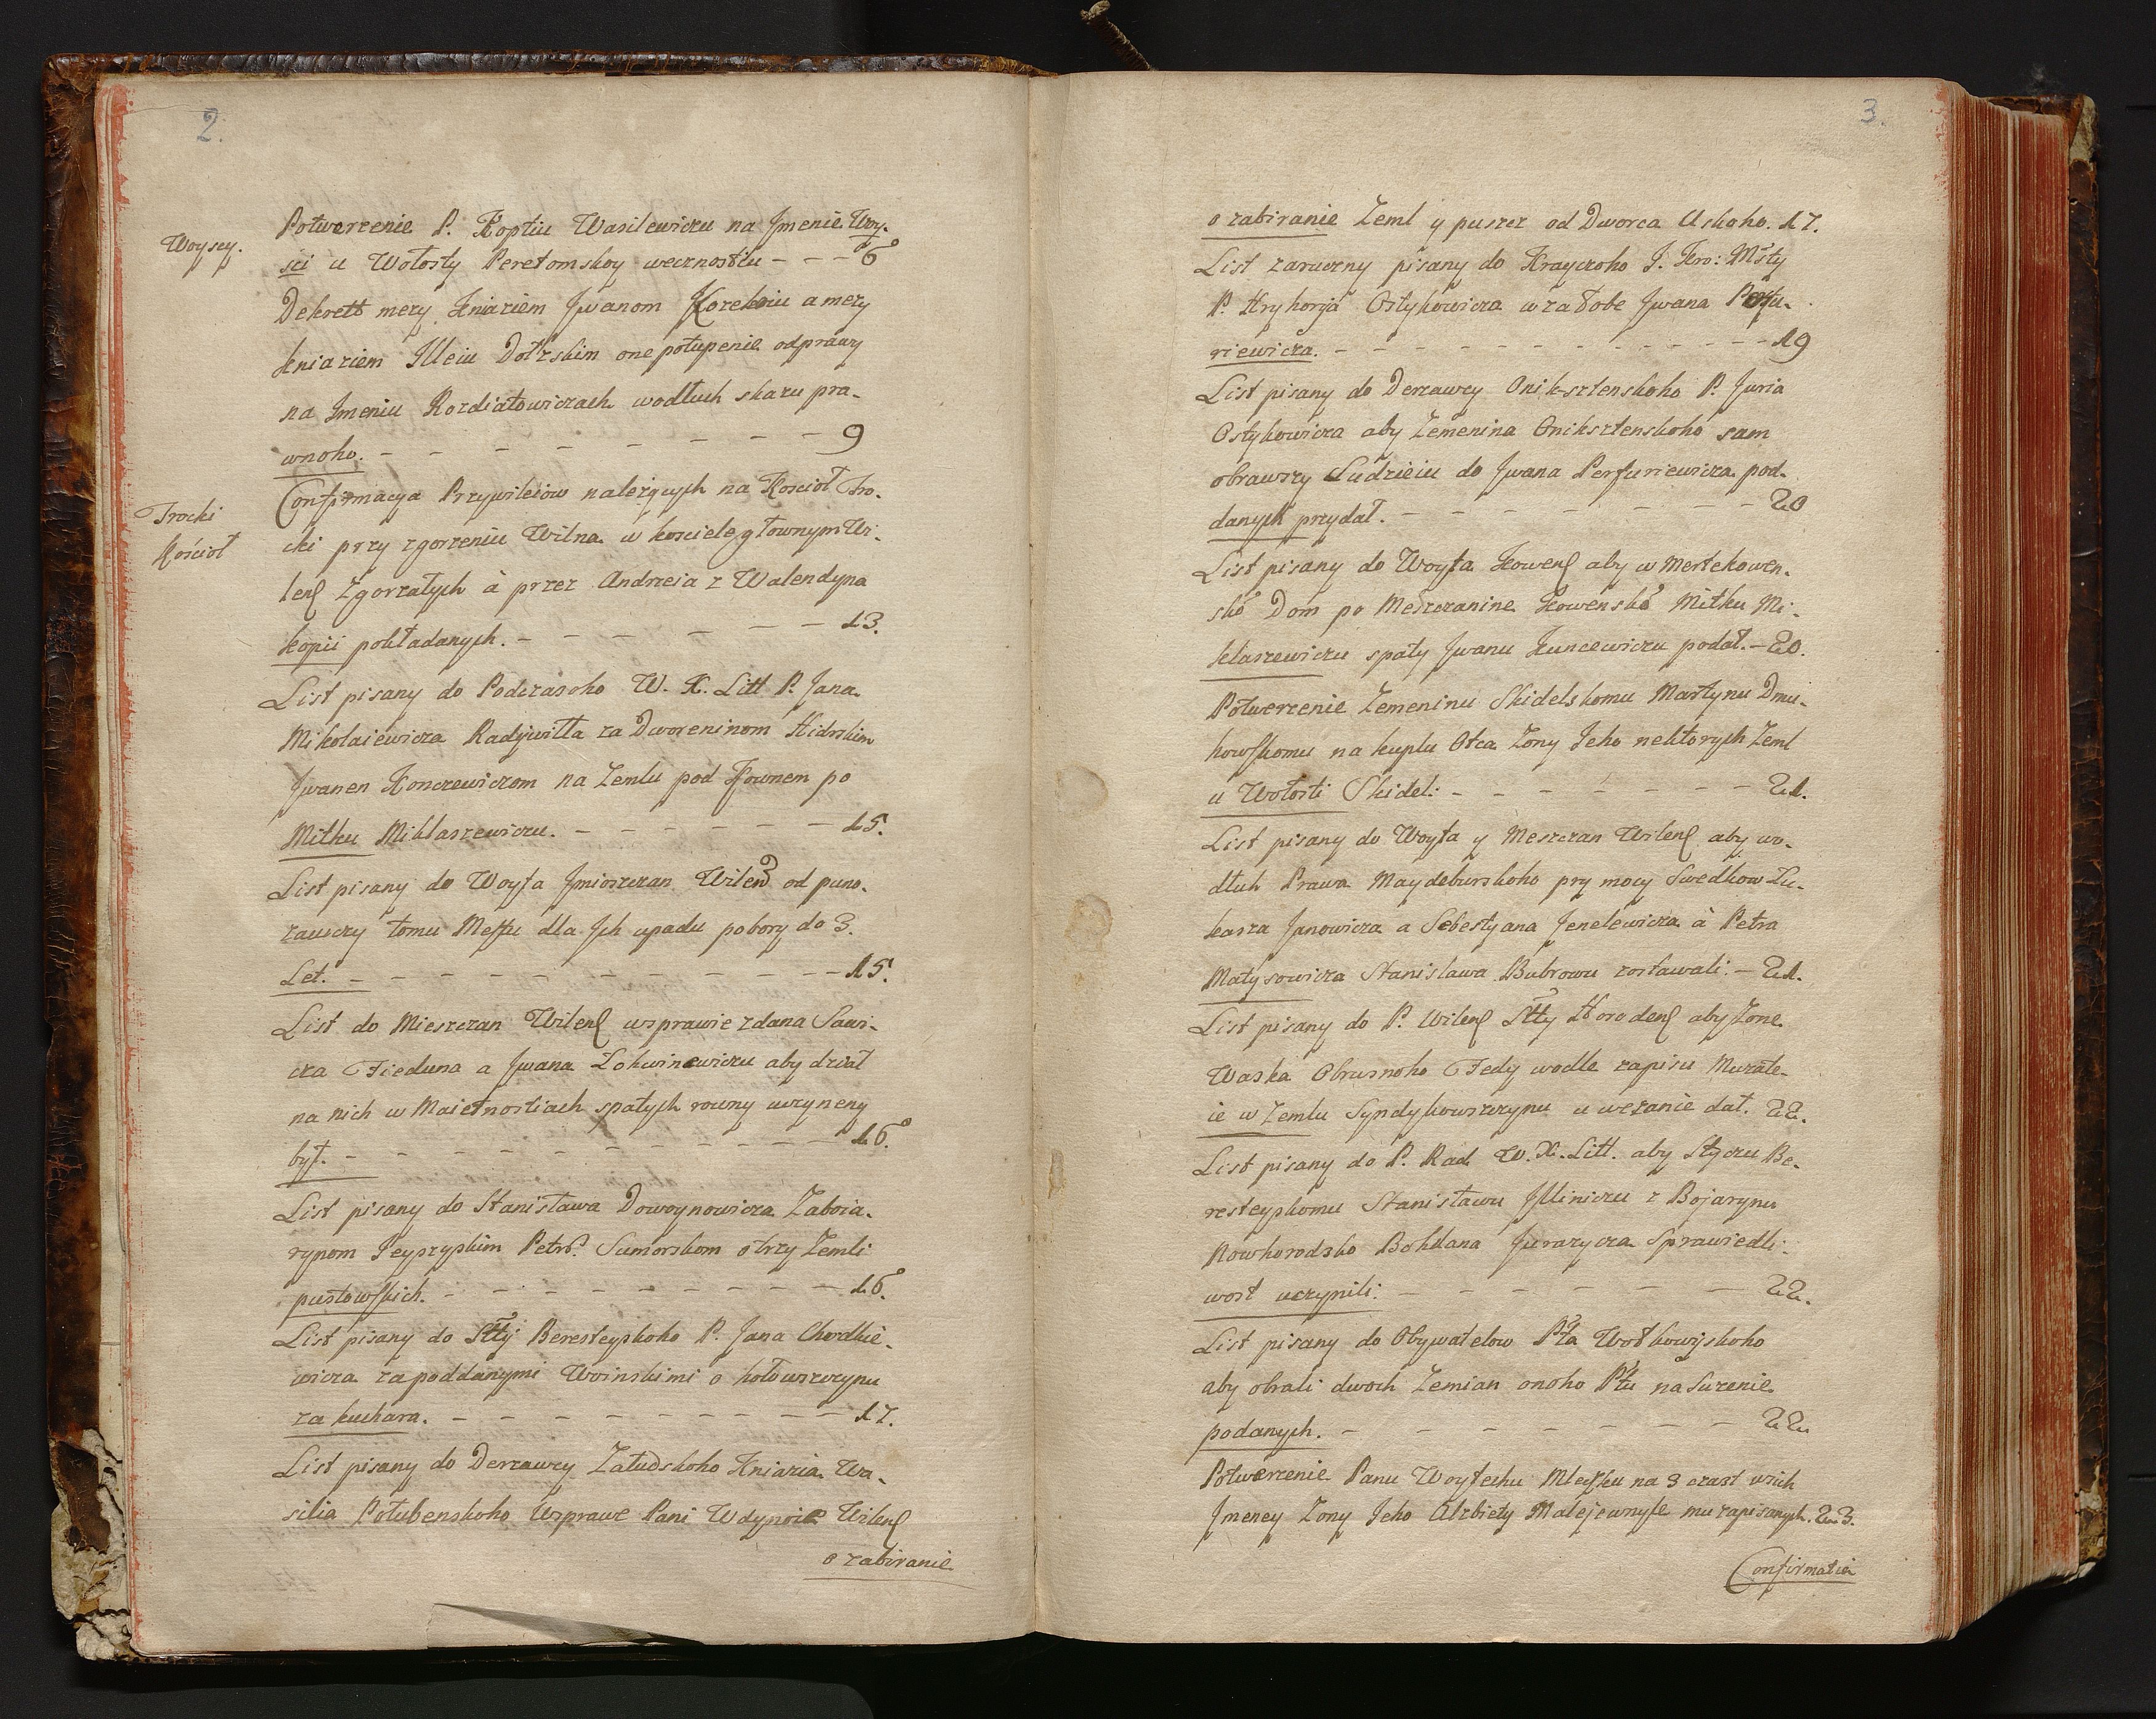 2.
Woysey.
Potwerzenie P. Koptiu Wasilewiczu na Jmenie Woy-
sci u Wołosty Peretomskoy wecznostiu - - - 6
Dekrett mezy Kniaziem Jwanom Korekoiu a mezy
kniaziem Illeiu Dolzskim one połupenie odprawy
na Jmeniu Rozdiałowiczach wodłuch skazu pra-
wnoho. - - - - - - - - 9
Trocki
Kościoł
Confirmacya Przywileiow należących na Kościoł Tro-
cki przy zgorzeniu Wilna w kosciele głownym Wi-
lenſ zgorzałych à przez Andrzeia z Walendyna
kopii pokładanych. - - - - - - 13.
List pisany do Podczaszoho W. X. Litt P. Jana
Mikolaiewicza Radziwiłła za Dworeninom Hidrskim
Jwanen Konczewiczom na Zemlu pod Kownem po
Mitku Miklaszewiczu. - - - - - - 15.
List pisany do Woyta Jmioszczan Wilenſ od puno-
zawczy tomu Mestu dla Jch upadu pobory do 3.
Let. - - - - - - - - - - 15.
List do Mieszczan Wilenſ wsprawie zdana Sawi-
cza Fieduna a Jwana Zokwinewiczu aby dział
na nich w Maietnostiach spałych rowny uczyneny
był. - - - - - - - - - 16.
List pisany do Stanisława Dowoynowicza Zaboia-
rynom Peyszyskim Petrō. Sumorskom otrzy Zemli
pustowſkich. - - - - - - - - - 16.
List pisany do Stty Beresteyskoho P. Jana Chodkie-
wicza za poddanymi Woinskimi o hołowszczynu
za kuchara. - - - - - - - - - 17.
List pisany do Derzawcy Załudskoho Kniazia Wa-
silia Połubenskoho Wsprawe Pani Wdynoie Wilenſ
o zabiranie
3.
o zabiranie Zeml y puszcz od Dworca Uskoho. 17.
List zaruczny pisany do Krayczoho J. Kro: Msty
P. Hryhorja Ostykowicza w załobe Jwana Perfu-
riewicza. - - - - - - - - - - 19
List pisany do Derzawcy Onik-sztenskoho P. Juria
Ostykowicza aby Zemenina Oniksztenskoho sam
obrawszy Sudzieiu do Jwana Perfuriewicza pod-
danych przydał. - - - - - - - 20
List pisany do Woyta Kowenſ aby w Mertekowen-
skō Dom po Mesczanine Kowenskō Mitku Mi-
klaszewiczu spały Jwanu Kuncewiczu podał. - 20.
Potwerzenie Zemeninu Skidelskomu Martynu Dmu-
howſkomu na kuplu Otca Zony Jeho nektorych Zeml
u Wołosti Skidel: - - - - - - - 21.
List pisany do Woyta y Meszczan Wilenſ aby wo-
dłuh Prawa Maydeburskoho pry mocy Swedkow Łu-
kasza Janowicza a Sebestyana Jenelewicza à Petra
Matysowicza Stanislawa Bubrowu zostawali. - 21.
List pisany do P. Wilenſ Stty Horodenſ aby Zone
Waska Obrusnoho Fedy wodle zapisu Muzałe-
ie w Zemlu Syndykowszczynu u wezanie dał. 22.
List pisany do P. Rad W. X. Litt. aby Styczu Be-
resteyskomu Stanisławu Jllniczu z Bojarynu
Nowhorodsko Bohdana Jurazycza Sprawiedli-
wost uczynili: - - - - - - 22.
List pisany do Obywatelow Ptta Wołkowyskoho
aby obrali dwoch Zemian onoho Pttu na Suzenie
podanych. - - - - - - 22.
Potwerzenie Panu Woytechu Mleczku na 3 czast wsich
Jmeney Zony Jeho Alzbiety Malejewnyſe mu zapisanych. 23.
Confirmatia